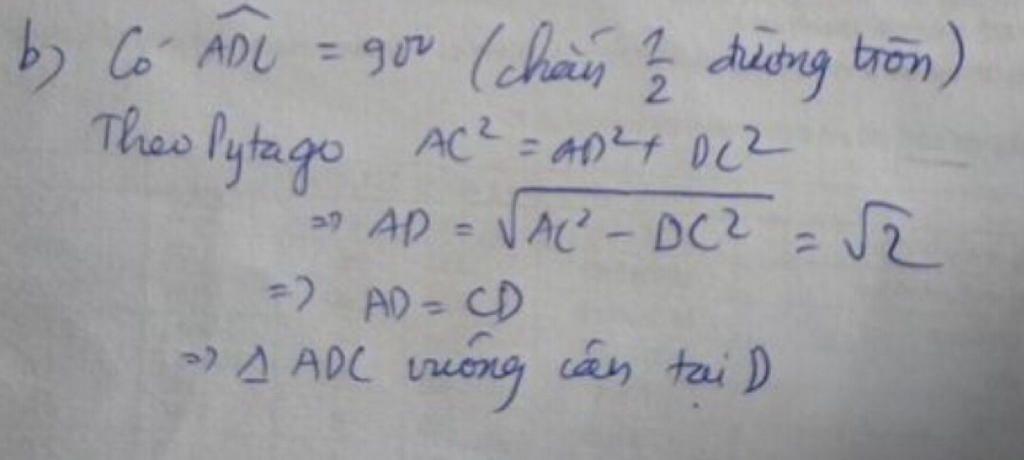 b) Có \widehat{ADC} = 90° (chắn \frac{1}{2} đường tròn)
Theo Pytago AC² = AD² + DC²
=> AD = \sqrt{AC² - DC²} = \sqrt{2}
=> AD = CD
=> Δ ADC vuông cân tại D